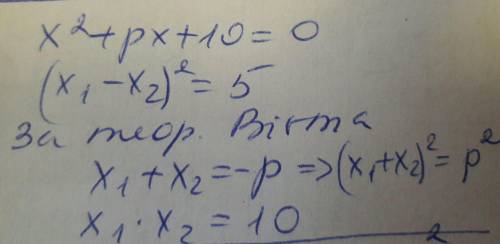 x² + px + 10 = 0
(x₁ - x₂)² = 5
За теор. Вієта
x₁ + x₂ = -p => (x₁ + x₂)² = p²
x₁ · x₂ = 10